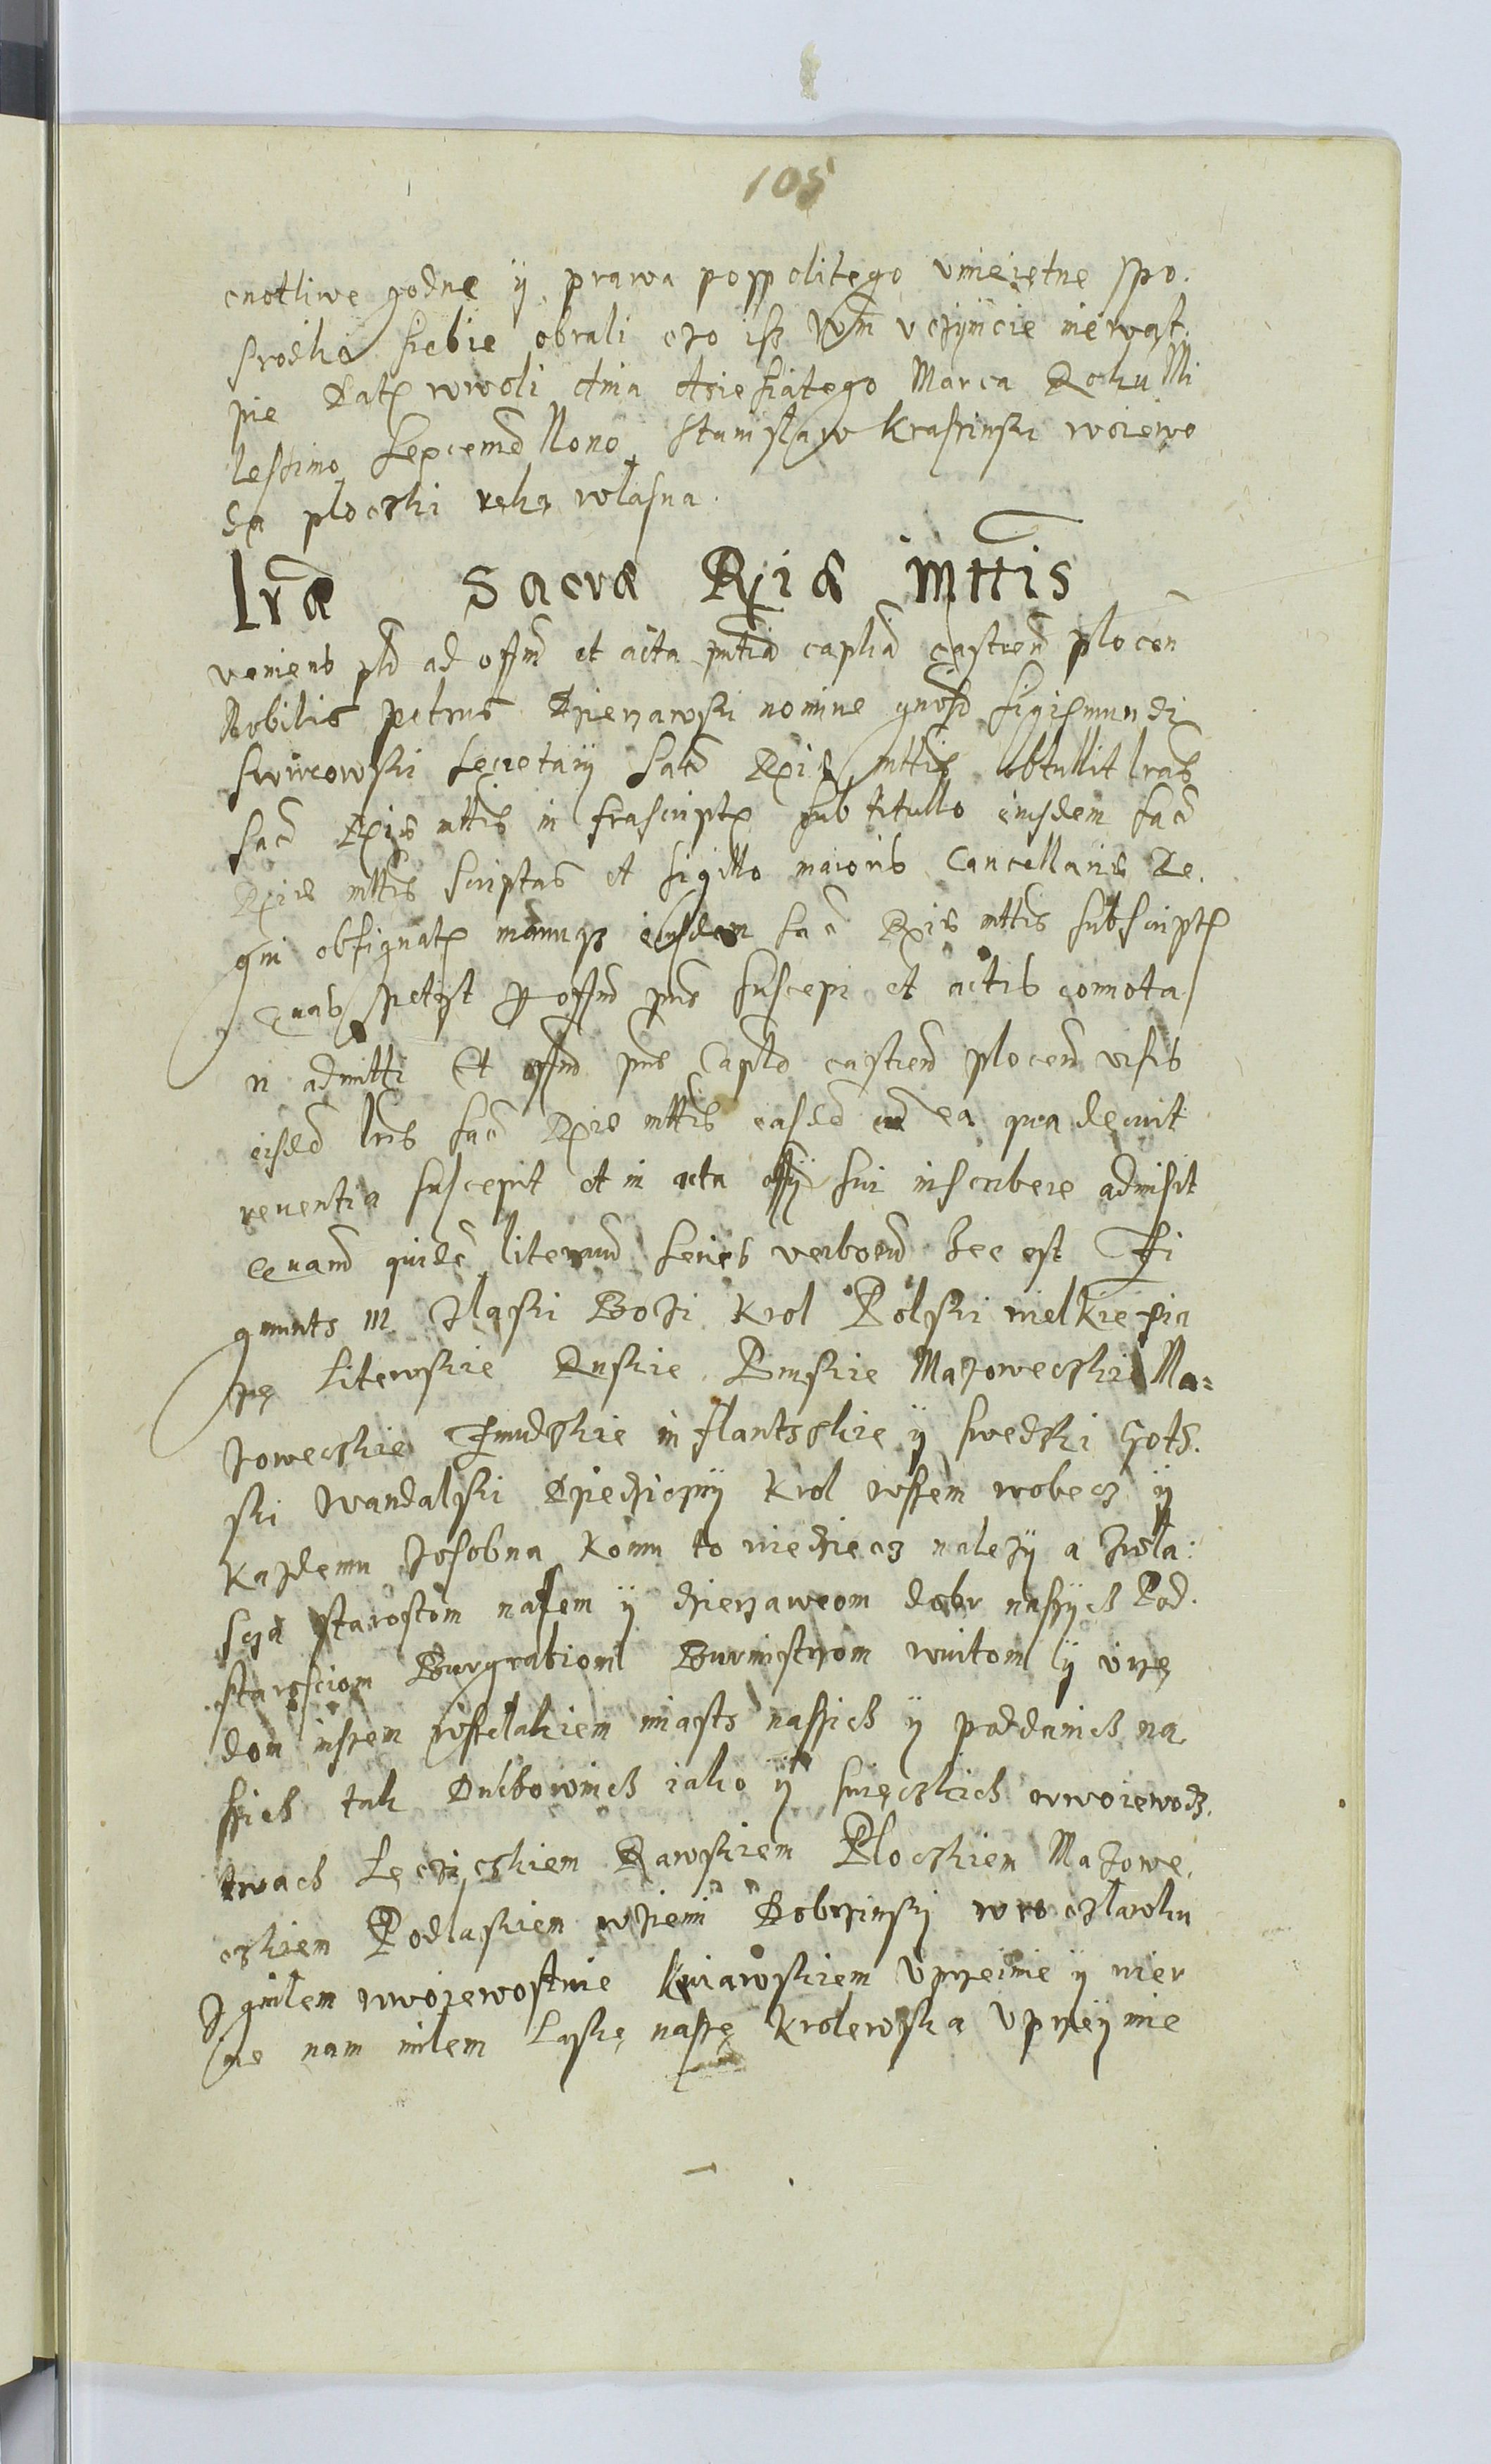 105
cnotliwe godne ÿ prawa pospolitego vmieiętne spo.
srodka siebie obrali czo isz Wm vczÿnicie niewąt.
pię Dat wwoli dnia dziesiątego Marca Roku Mi
lessimo Sexcenmo Nono Stanisław Krasinski woiewo
da ploczki ręką własna.
Lrae Sacrae Rgiae Mttis
veniens pld ad offm et acta pntia caplia castren plocen
Nobilis Petrus Dzierzawski nomine gnosi Sigismundi
Secretarÿ Sac Rgie Mttis obtullit lras
Sac Rgie mttis infrascript sub titullo eiusdem Sac
Rgie mttis scriptas et sigillo maioris Cancellarie Re.
gni obsignat manuqz eiusdem Sac Rgie mttis subscript
Quas petyt per offm pns suscepi et actis connota
ri admitti Et offm pns Caple castren plocen visis
eisde lris Sac Rgie mttis easde cum ea qua decuit
reuentia suscepit et in acta offÿ sui inscribere admisit
Quarum quide literarum series verborum hec est Zi
gmunts III z łaski Bozi Krol Polski wielkie xią
zę Litewskie Ruskie Pruskie Mazoweczkie Ma=
zoweczkie Zmudzkie inflantsskie ÿ swedzki Gots.
ski Wandalski Dziedzicznÿ Krol wssem wobecz ÿ
Kazdemu zosobna Komu to wiedziecz nalezÿ a zwla:
scza starostom nasem ÿ dzierzawcom dobr naszÿch Pod.
starosciom Burgrabiom Burmistrzom woitom ÿ vrzę
dom inszem wsselakiem miasts nassich ÿ poddanich na
ssich tak Duchownich iako ÿ swieczkich wwoiewodz.
twach Lęcziczkiem Rawskiem Ploczkiem Mazowe.
czkiem Podlaskiem wziemi Dobrzinskÿ
wwoiewostwie Kuiawskiem Vprzeimie ÿ wier
nie nam milem Laskę naszę Krolewska Vprzeÿmie